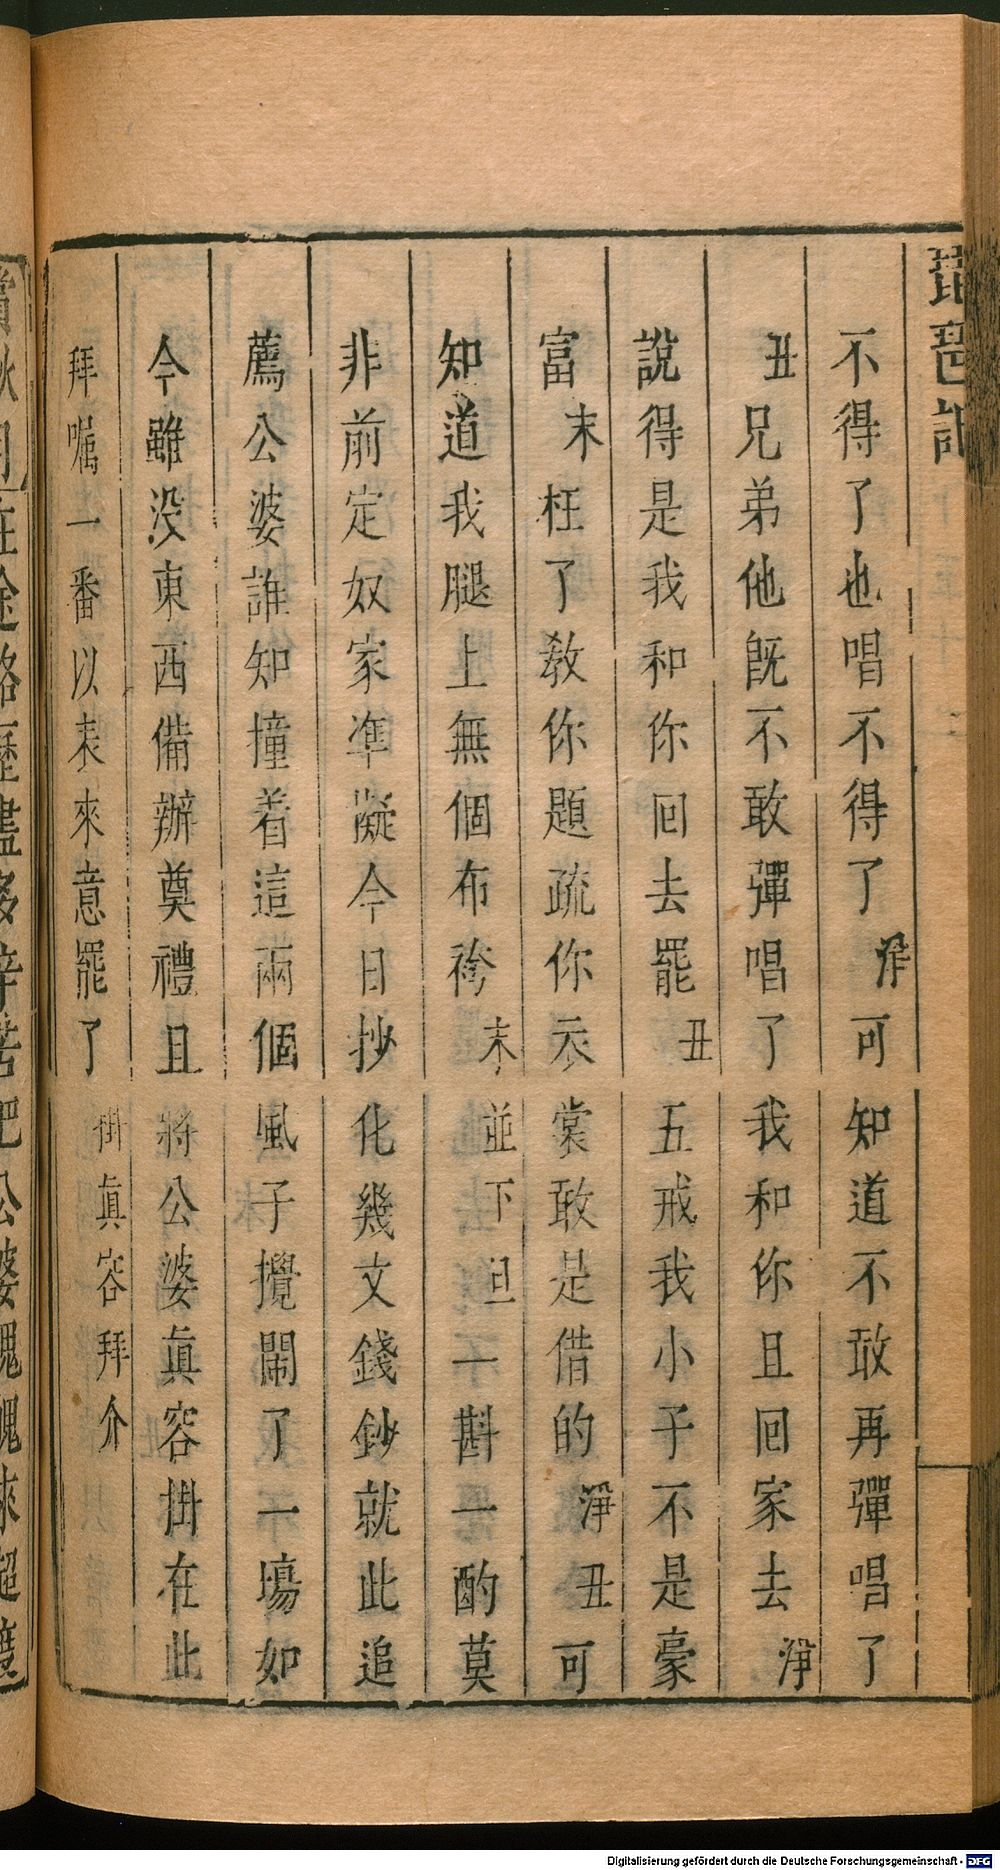 琵琶記
不得了也唱不得了淨可知道不敢再彈唱了
丑兄弟他既不敢彈唱了我和你且回家去淨
說得是我和你回去罷丑五戒我小子不是豪
富末枉了教你題疏你衣棠敢是借的淨丑可
知道我腿上無個布袴末並下旦一斟一酌莫
非前定奴家準擬今日抄化幾文錢鈔就此追
薦公婆誰知撞着這兩個風子攪鬧了一塲如
今雖没東西備辦奠禮且將公婆眞容掛在此
拜囑一番以表來意罷了掛眞容拜介
在途路歷盡多辛苦把公婆魂魄來超度
Digitalisierung gefördert durch die Deutsche Forschungsgemeinschaft - DFG